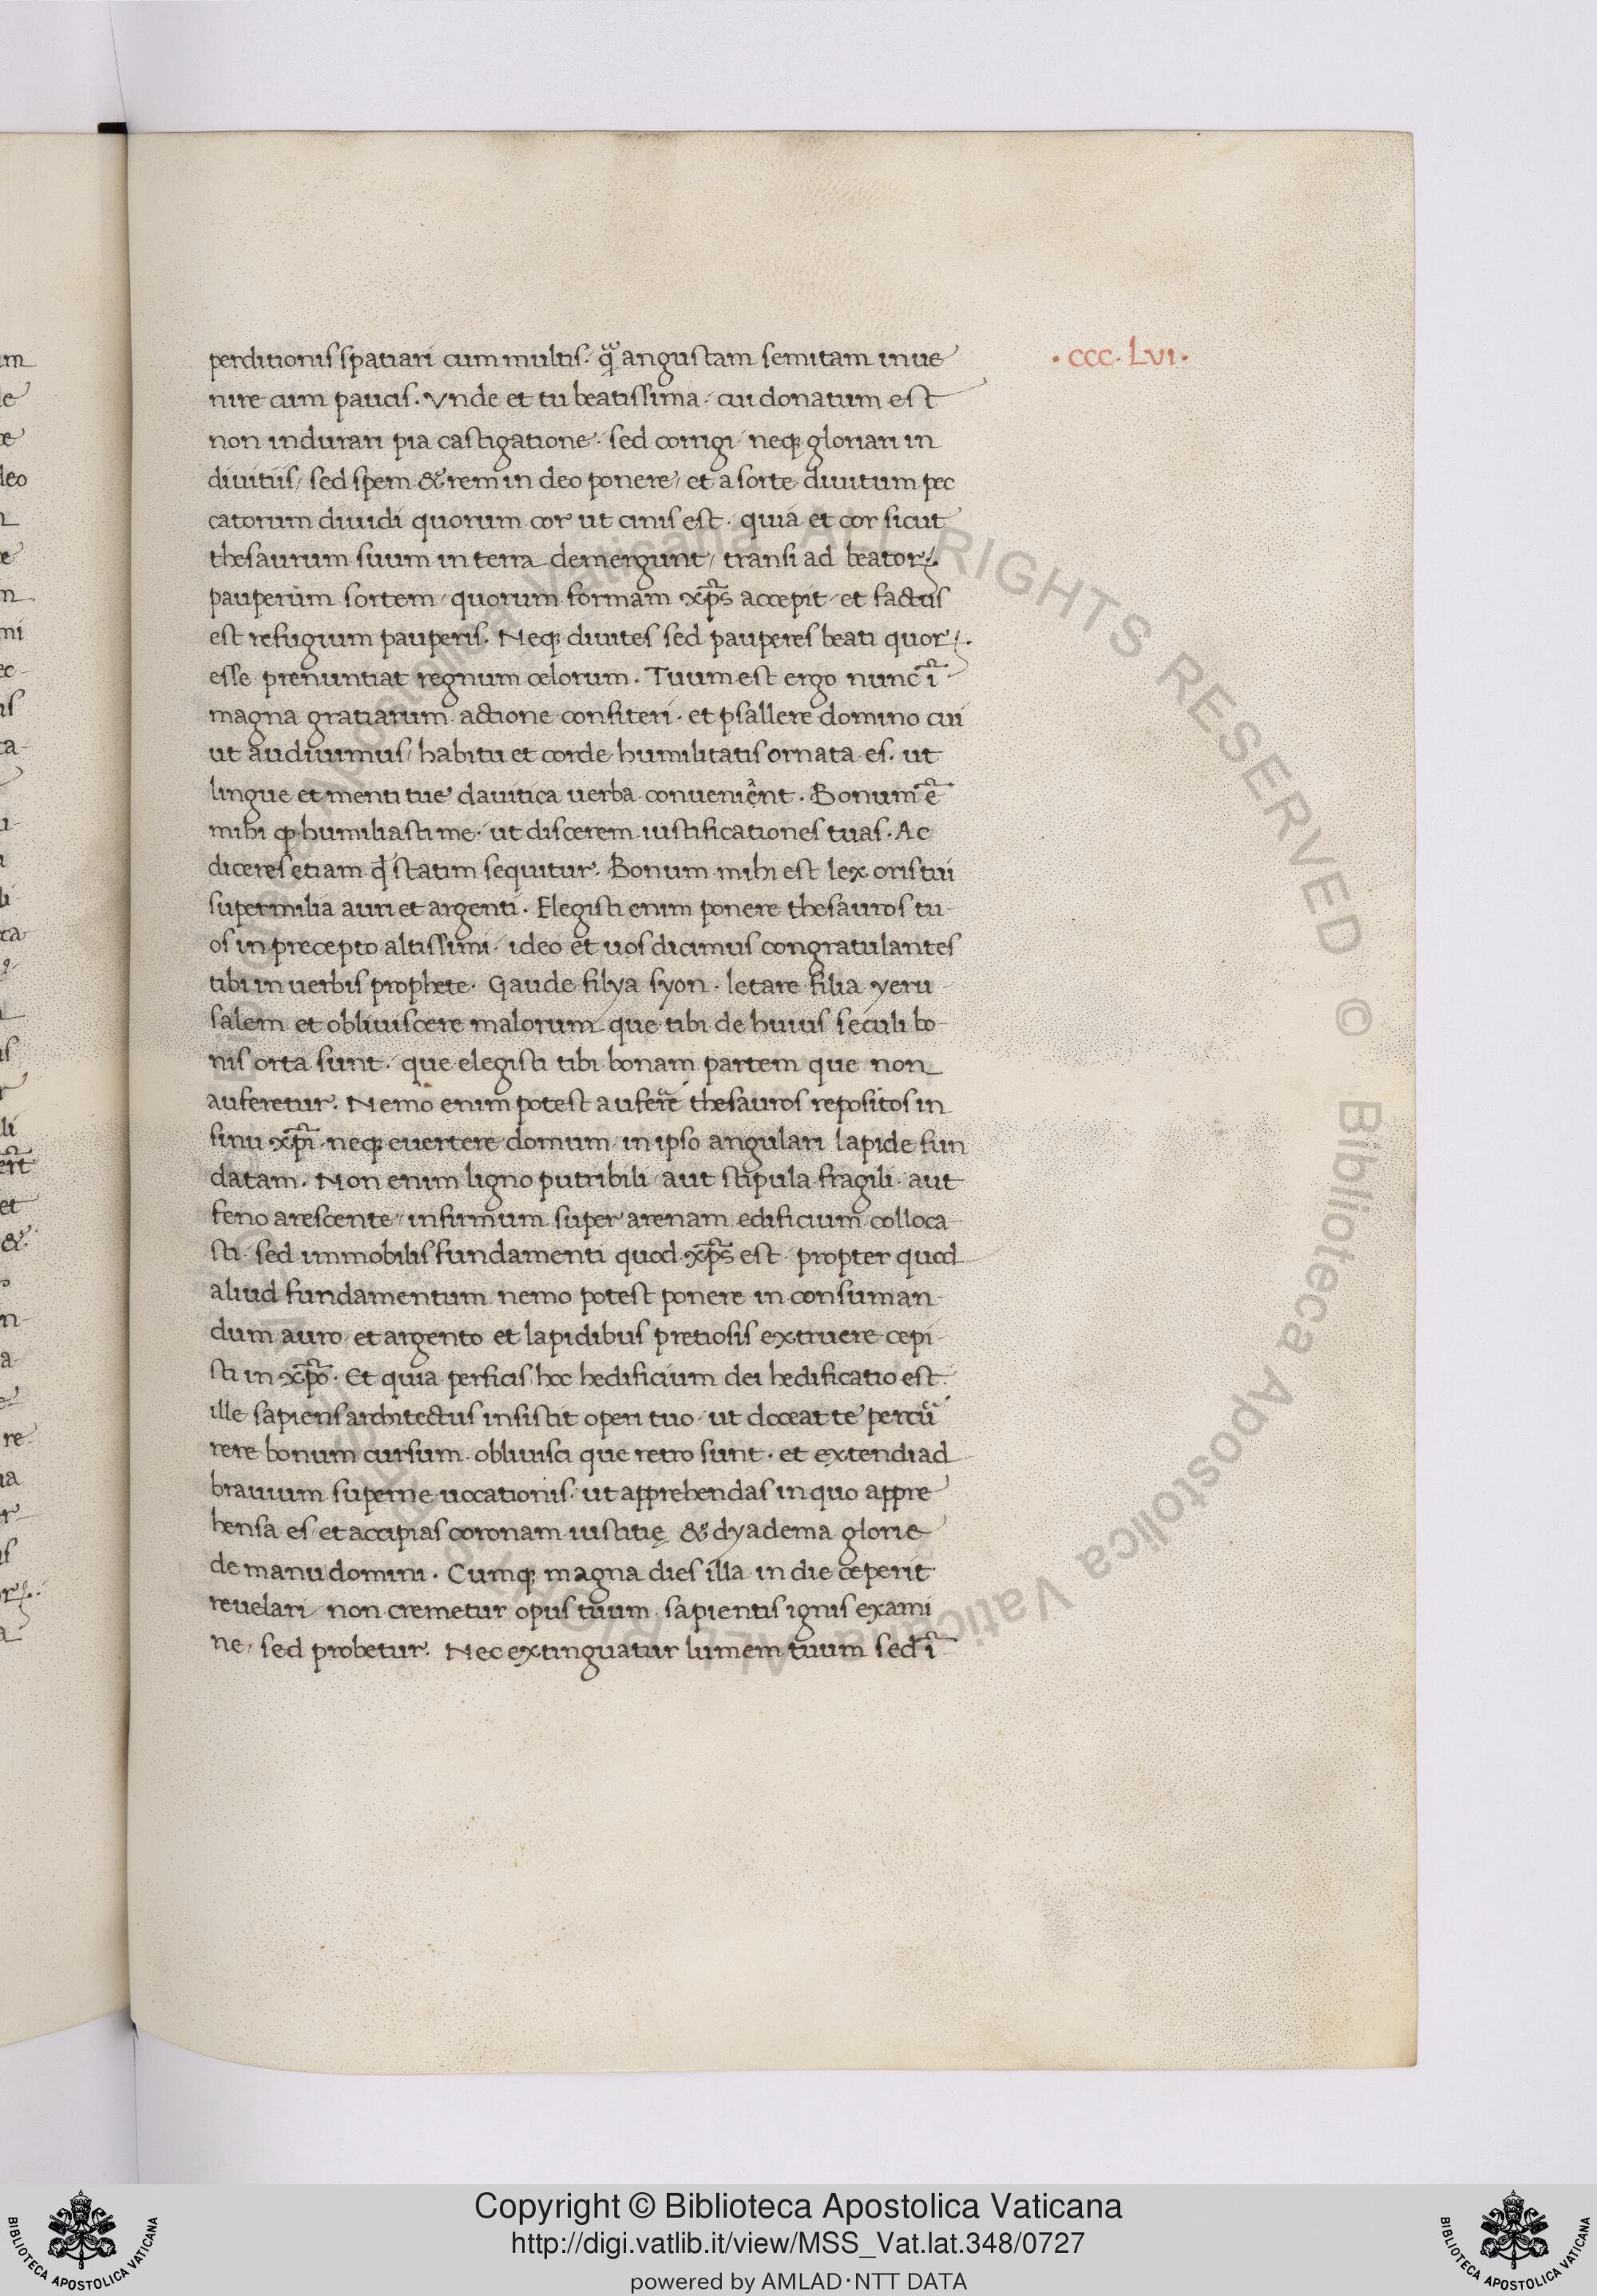 perditionis spatiari cum multis. q̃ angustam semitam inue
nire cum paucis. Vnde et tu beatissima. cui donatum est
non indurari pia castigatione. sed corrigi neqꝫ gloriari in
diuitiis, sed spem & rem in deo ponere, et a sorte diuitum pec
catorum diuidi quorum cor ut cinis est. quia et cor sicut
thesaurum suum in terra demergunt, transi ad beatorꝝ
pauperum sortem, quorum formam xp̃s accepit, et factus
est refugium pauperis. Neqꝫ diuites sed pauperes beati quorꝝ.
esse prenuntiat regnum celorum. Tuum est ergo nunc ĩ
magna gratiarum actione confiteri. et psallere domino cui
ut audiuimus, habitu et corde humilitatis ornata es. ut
lingue et menti tue dauitica uerba conuenient. Bonum ẽ
mihi qꝫ humiliasti me. ut discerem iustificationes tuas. Ac
diceres etiam qđ statim sequitur. Bonum mihi est lex oris tui
super milia auri et argenti. Elegisti enim ponere thesauros tu-
os in precepto altissimi. ideo et uos dicimus congratulantes
tibi in uerbis prophete. Gaude filya syon. letare filia yeru-
salem et obliuiscere malorum que tibi de huius seculi bo-
nis orta sunt. que elegisti tibi bonam partem que non
auferetur. Nemo enim potest auferr̃e thesauros repositos in
sinu xp̃i. neqꝫ euertere domum in ipso angulari lapide fun
datam. Non enim ligno putribili, aut stipula fragili. aut
feno arescente, infirmum super arenam edificium colloca-
sti. sed immobilis fundamenti quod xp̃s est. propter quod
aliud fundamentum nemo potest ponere in consuman-
dum auro, et argento et lapidibus pretiosis extruere cepi-
sti in xp̃o. Et quia perficis hoc hedificium dei hedificatio est.
ille sapiens architectus insistit operi tuo, ut doceat te percũ
rere bonum cursum. obliuisci que retro sunt. et extendi ad
brauium superne uocationis. ut apprehendas in quo appre
hensa es, et accipias coronam iustitię & dyadema glorie
de manu domini. Cumqꝫ magna dies illa in die ceperit
reuelari, non cremetur opus tuum. sapientis ignis exami
ne, sed probetur. Nec extinguatur lumem tuum sed ĩ
. CCC. LVI.
Copyright © Biblioteca Apostolica Vaticana
http://digi.vatlib.it/view/MSS_Vat.lat.348/0727
powered by AMLAD·NTT DATA